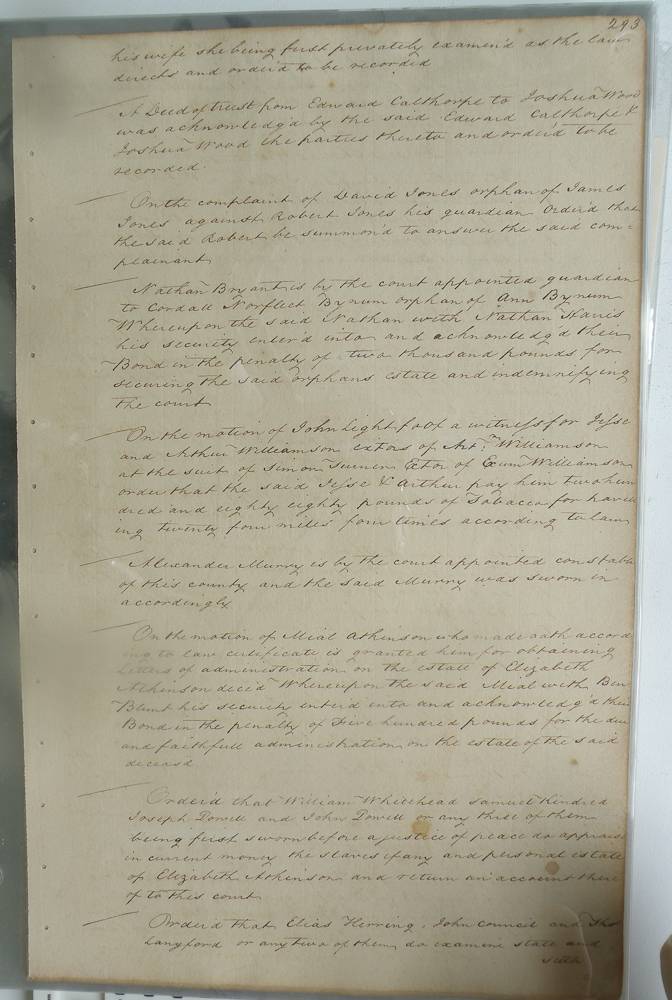 293
his wife she being first privately examin'd as the law
directs and order'd to be recorded
A Deed of trust from Edward Calthorpe to Joshua Wood
was acknowledg'd by the said Edward Calthorpe &
Joshua Wood the parties thereto and order'd to be
recorded.
On the complaint of David Jones orphan of James
Jones against Robert Jones his guardian Order'd that
the said Robert be summon'd to answer the said com=
plainant
Nathan Bryant is by the court appointed guardian
to Cordall Norfleet Bynum orphan of Ann Bynum
Whereupon the said Nathan with Nathan Harris
his security enter'd into and acknowledg'd their
Bond in the penalty of two thousand pounds for
securing the said orphans estate and indemnifying
the court
On the motion of John Lightfoot a witness for Jesse
and Arthur Williamson extors of Art.r Williamson
at the suit of Simon Turner Extor of Exum Williamson
order that the said Jesse & Arthur pay him two hun
dred and eighty eighty pounds of Tobacco for travell
ing twenty four miles four times according to law
Alexander Murry is by the court appointed constable
of this county and the said Murry was sworn in
accordingly
On the motion of Mial Atkinson who made oath accord
ing to law certificate is granted him for obtaining
letters of administration on the estate of Elizabeth
Atkinson dec'd Whereupon the said Mial with Ben
Blunt his security enter'd into and acknowledg'd their
Bond in the penalty of Five hundred pounds for the due
and faithfull administration on the estate of the said
deceasd
Order'd that William Whitehead Samuel Kindred
Joseph Dowell and John Dowell or any three of them
being first sworn before a justice of peace do appraise
in current money the slaves if any and personal estate
of Elizabeth Atkinson and return an account there
of to this court
Order'd that Elias Herring, John Council and Tho
Langford or any two of them do examine state and
settle